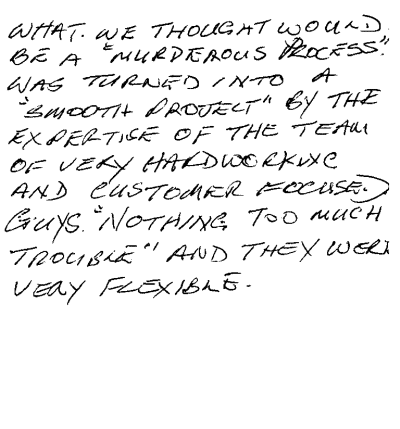 WHAT. WE THOUGHT WOULD
BE A "MURDEROUS PROCESS".
WAS TURNED INTO A
"SMOOTH PROJECT" BY THE
EXPERTISE OF THE TEAM
OF VERY HARDWORKING
AND CUSTOMER FOCUSED
GUYS. "NOTHING TOO MUCH
TROUBLE" AND THEY WERE
VERY FLEXIBLE.